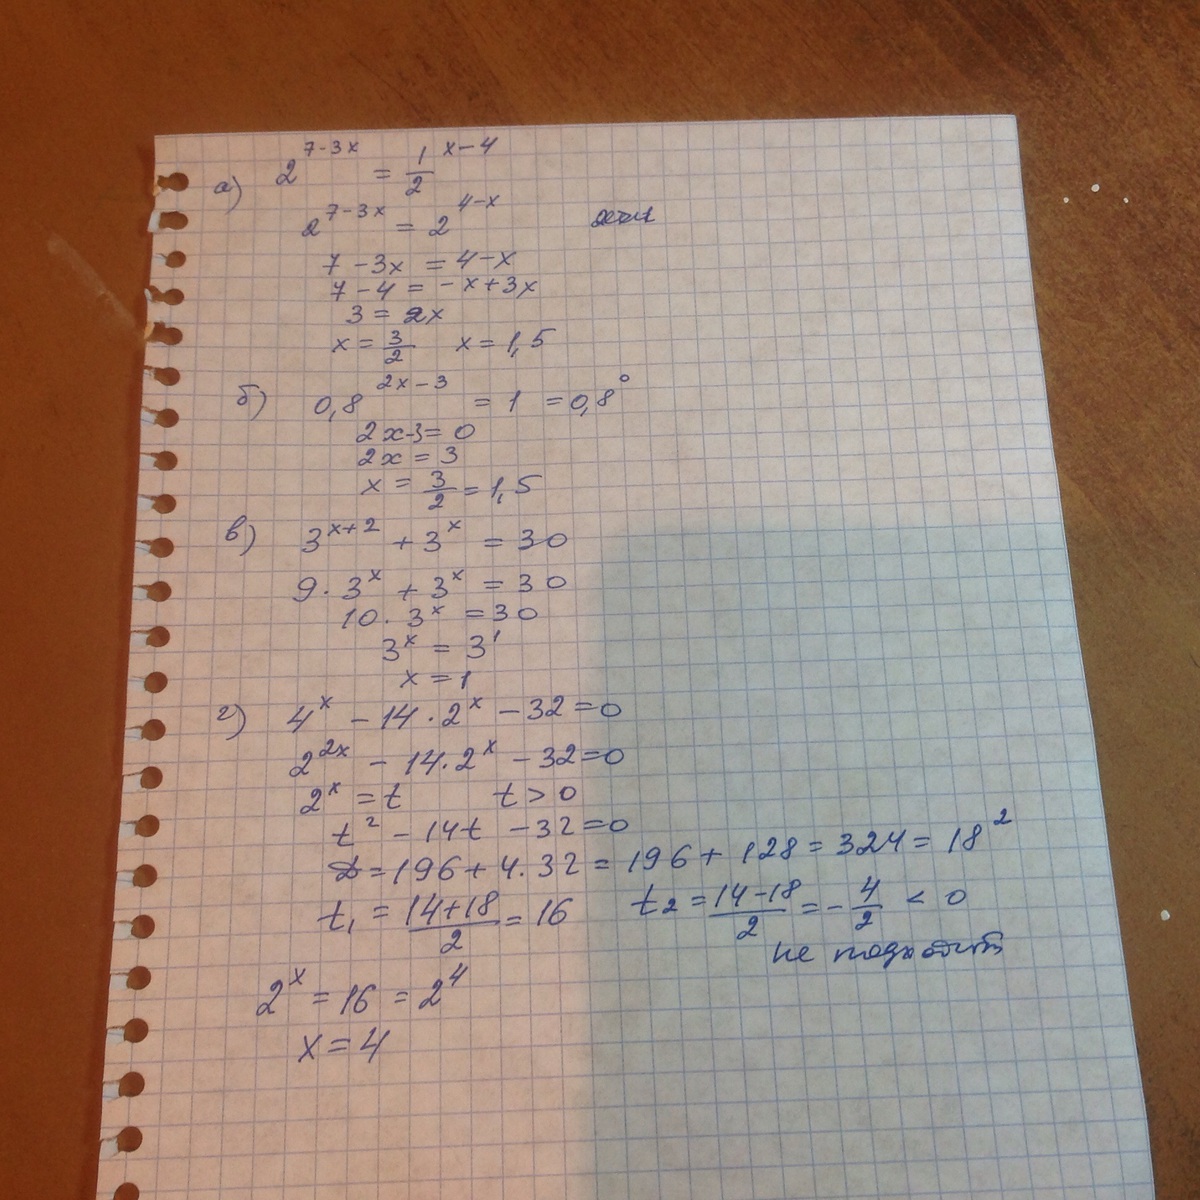 а) 2^(7-3x) = 1/2^(x-4)
2^(7-3x) = 2^(4-x)
7-3x = 4-x
7-4 = -x+3x
3 = 2x
x = 3/2 x = 1,5
б) 0,8^(2x-3) = 1 = 0,8^0
2x-3 = 0
2x = 3
x = 3/2 = 1,5
в) 3^(x+2) + 3^x = 30
9·3^x + 3^x = 30
10·3^x = 30
3^x = 3^1
x = 1
г) 4^x - 14·2^x - 32 = 0
2^(2x) - 14·2^x - 32 = 0
2^x = t t > 0
t^2 - 14t - 32 = 0
D = 196 + 4·32 = 196 + 128 = 324 = 18^2
t₁ = (14+18)/2 = 16 t₂ = (14-18)/2 = -4/2 < 0
не подходит
2^x = 16 = 2^4
x = 4